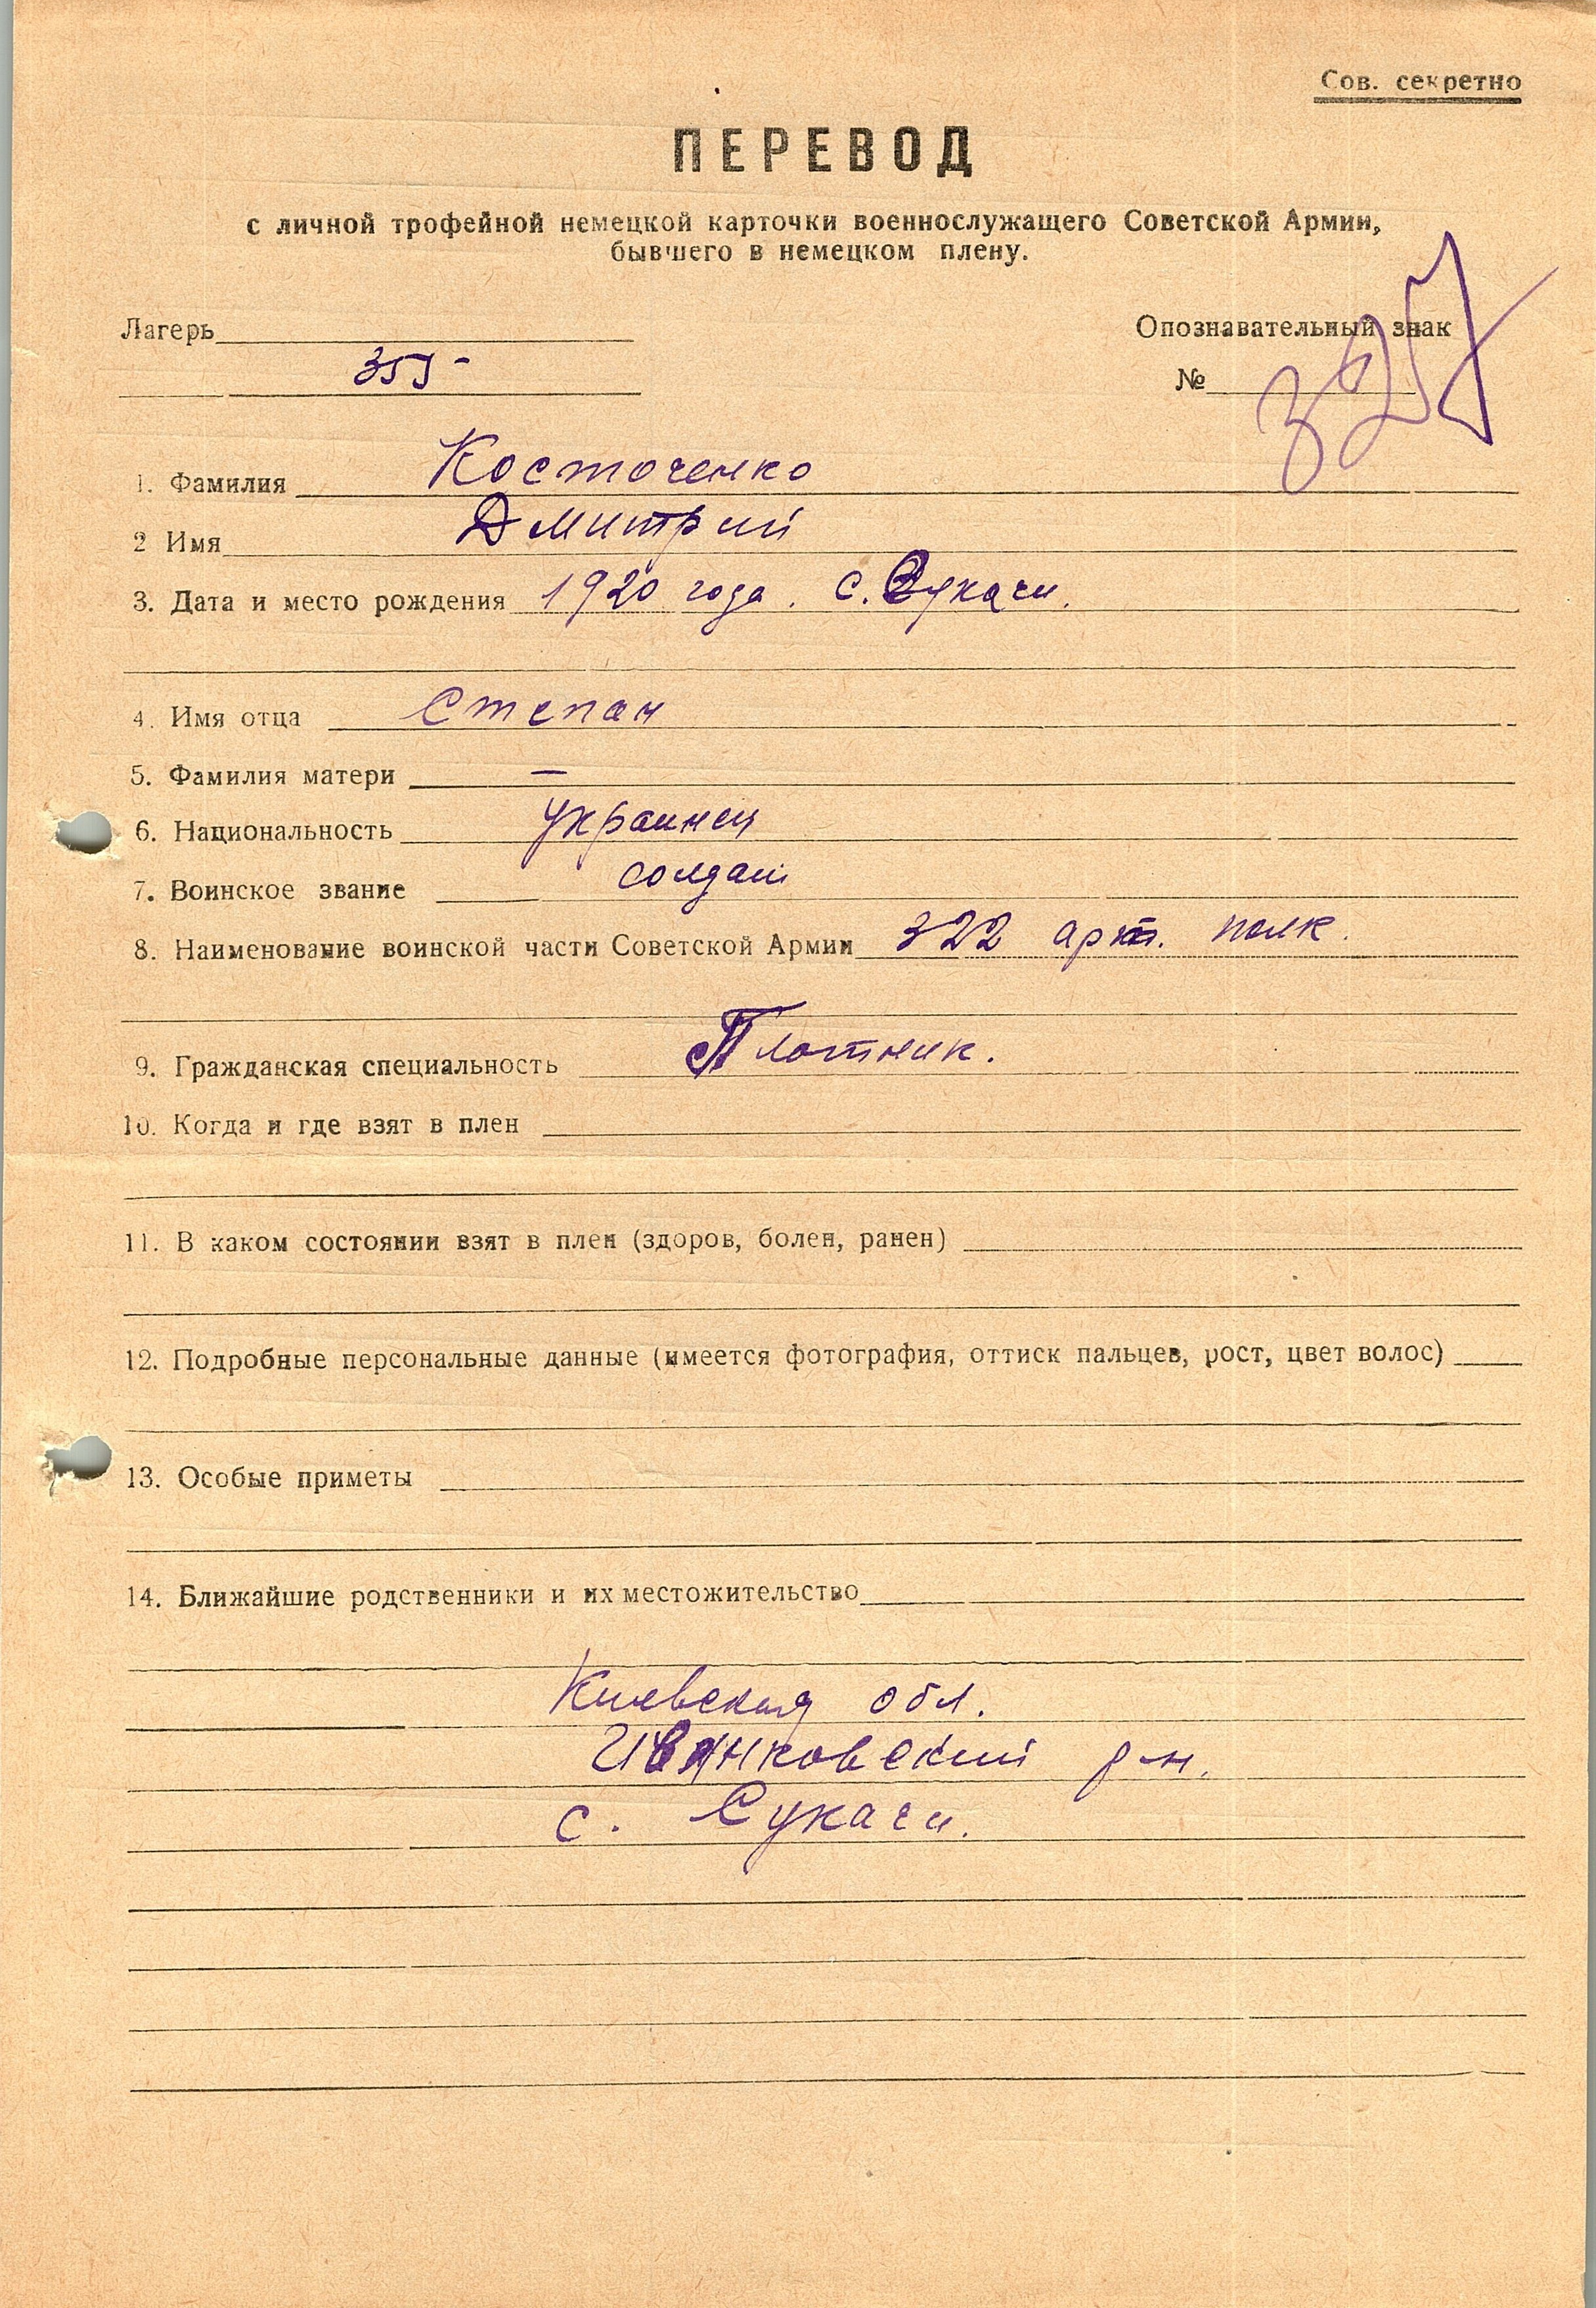 Сов. секретно
ПЕРЕВОД
с личной трофейной немецкой карточки военнослужащего Советской Армии,
бывшего в немецком плену.
Лагерь
Опознавательный знак
355
№ 327
1. Фамилия Косточенко
2 Имя Дмитрий
3. Дата и место рождения 1920 года. с. Сукачи.
4. Имя отца Степан
5. Фамилия матери —
6. Национальность украинец
7. Воинское звание солдат
8. Наименование воинской части Советской Армии 322 арт. полк.
9. Гражданская специальность Плотник.
10. Когда и где взят в плен
11. В каком состоянии взят в плен (здоров, болен, ранен)
12. Подробные персональные данные (имеется фотография, оттиск пальцев, рост, цвет волос)
13. Особые приметы
14. Ближайшие родственники и их местожительство
Киевская обл.
Иванковский р-н.
с. Сукачи.